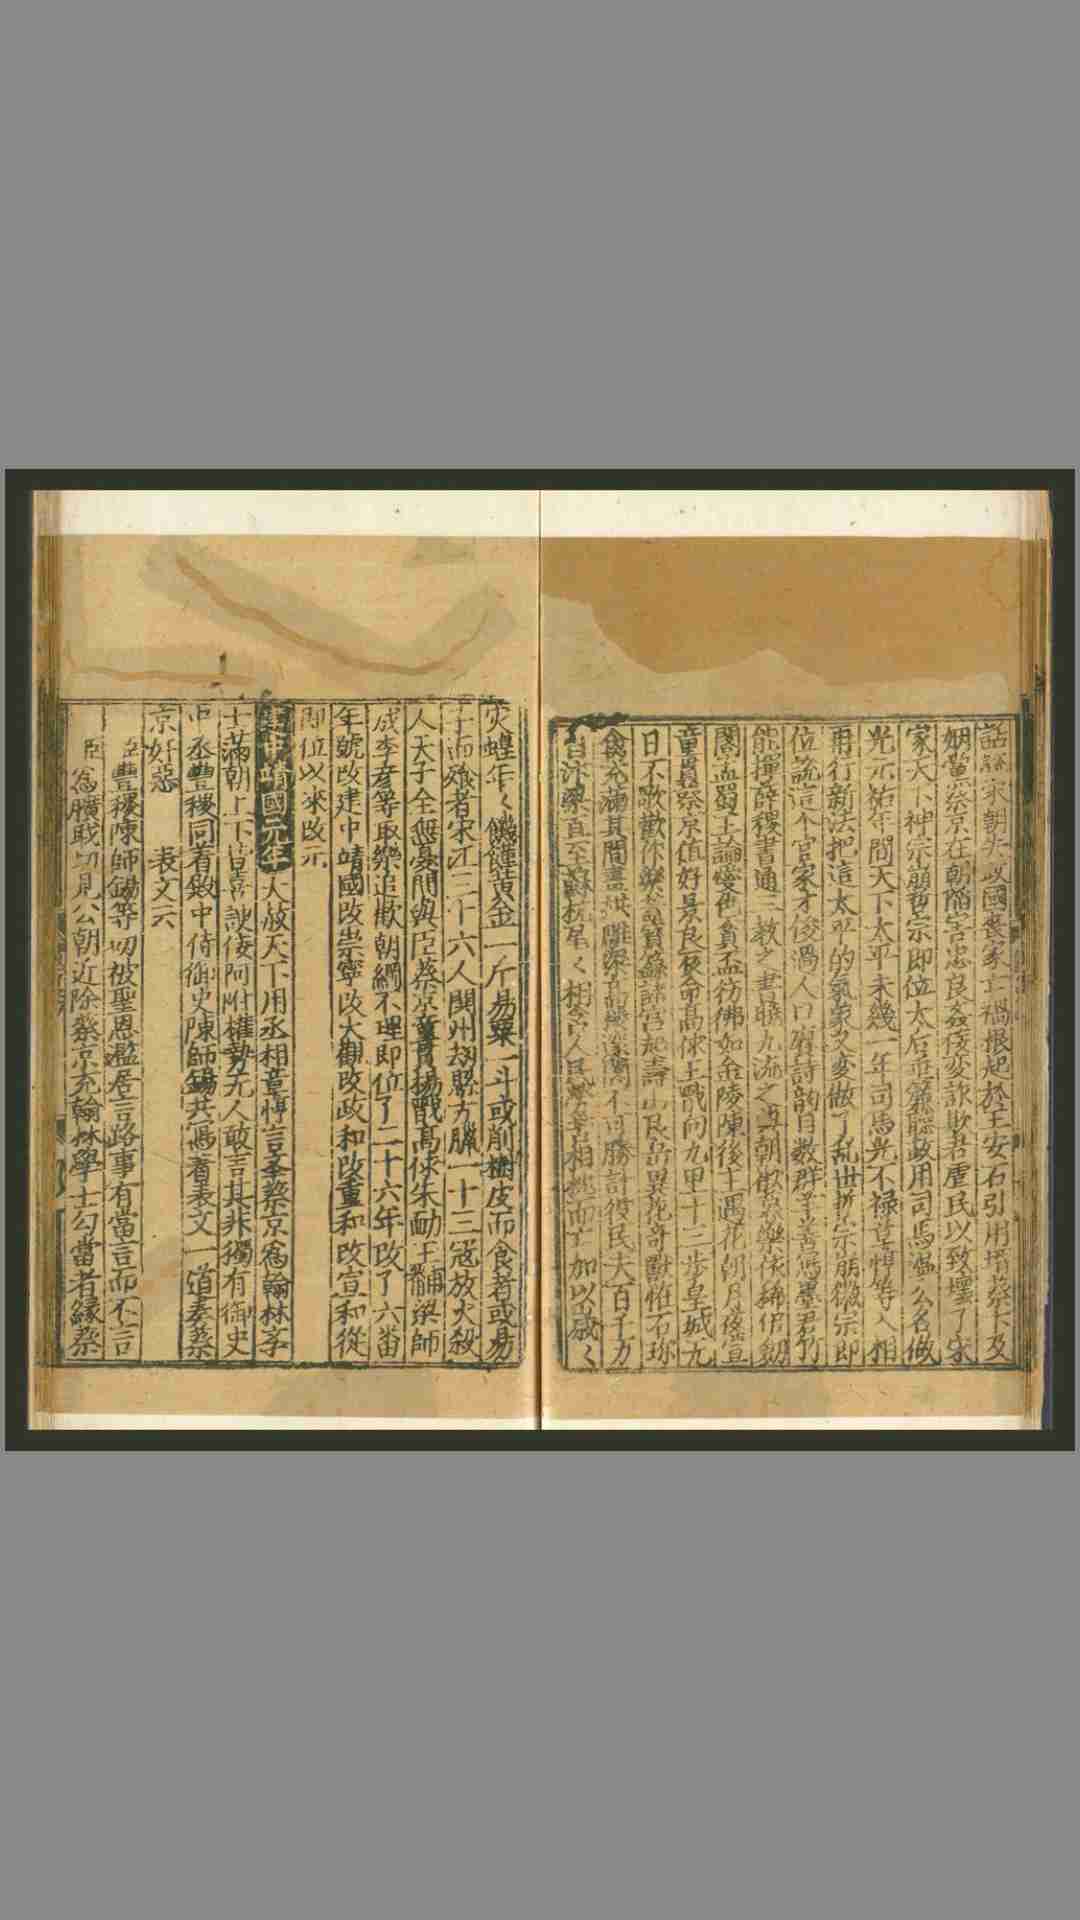 話說宋朝失政國喪家亡禍根起於王安石引用壻蔡卞及
姻黨蔡京在朝陷害忠良姦佞変詐欺君虐民以致壞了宋
家天下神宗崩哲宗即位太后垂簾聽政用司馬温公名做
光元祐年間天下太平未幾一年司馬光不禄章惇等入相
再行新法把這太平的氣象又変做了乱世哲宗崩徽宗即
位說這个官家才俊過人口賡詩韵目数群羊善寫墨君竹
能揮薛稷書通三教之書曉九流之典朝歡暮樂依稀似劔
閣孟蜀王論愛色貪盃彷彿如金陵陳後主遇花朝月夜宣
童貫蔡京值好景良夜命高俅王戩向九里十三步皇城
日不歌歡作樂盖寳籙諸宫起壽山艮岳異花奇獸恠石珎
禽充滿其間畫棟雕梁高樓邃閣不可勝計役民夫百千万
自汴梁直至蘇杭尾〻相含人民勞苦相枕而亡加以歳〻
灾蝗年〻饑饉黄金一斤易粟一斗或削樹皮而食者或易
子而飱者宋江三十六人閧州刼縣方臘一十三冦放火殺
人天子全無憂問與臣蔡京童貫楊戩高俅朱勔王黼梁師
成李彦等取樂追歡朝綱不理即位了二十六年改了六畨
年號改建中靖國改崇寧改大觀改政和改重和改宣和從
即位以來改元
建中靖國元年大赦天下用丞相章惇言舉蔡京爲翰林学
士滿朝上下皆喜諛佞阿附權勢无人敢言其非獨有御史
中丞豐稷同着殿中侍御史陳師錫共寫着表文一道奏蔡
京奸惡 表文云
臣豐稷陳師錫等切被聖恩濫居言路事有當言而不言
臣爲曠戝切見公朝近除蔡京充翰林學士勾當者緣蔡